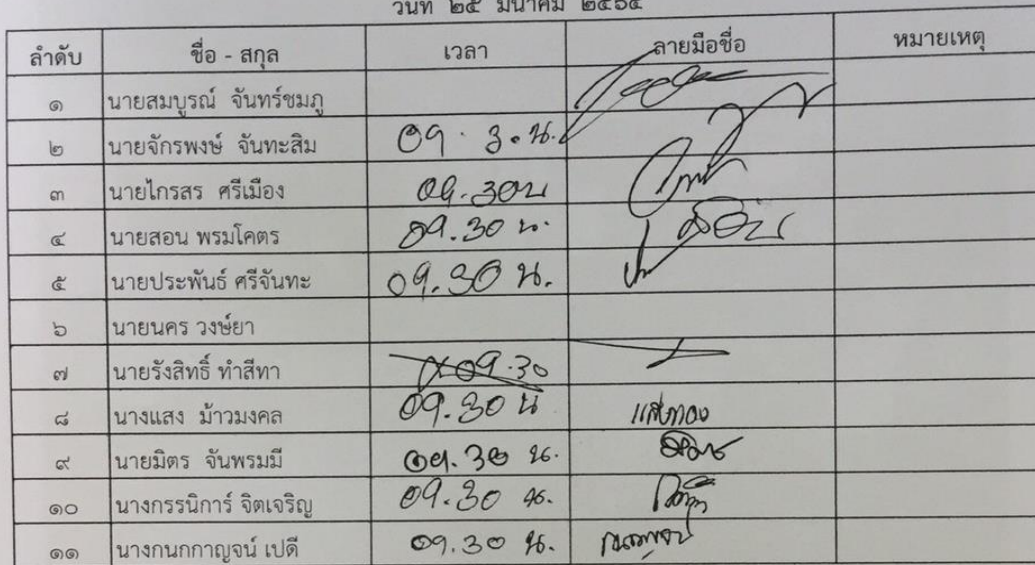 วันที่ ๒๕ มีนาคม ๒๕๖๔
ลำดับ ชื่อ - สกุล เวลา ลายมือชื่อ หมายเหตุ
๑ นายสมบูรณ์ จันทร์ชมภู
๒ นายจักรพงษ์ จันทะสิม 09.30น.
๓ นายไกรสร ศรีเมือง 09.30น
๔ นายสอน พรมโคตร 09.30 น.
๕ นายประพันธ์ ศรีจันทะ 09.30 น.
๖ นายนคร วงษ์ยา
๗ นายรังสิทธิ์ ทำสีทา 09.30
๘ นางแสง ม้าวมงคล 09.30 น
๙ นายมิตร จันพรมมี 09.30 น.
๑๐ นางกรรนิการ์ จิตเจริญ 09.30 น.
๑๑ นางกนกกาญจน์ เปดี 09.30 น.